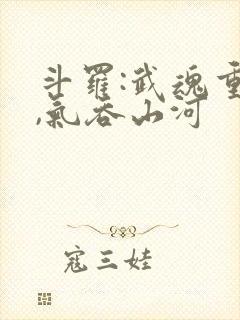 斗羅:武魂重
,氣吞山河
寇三娃